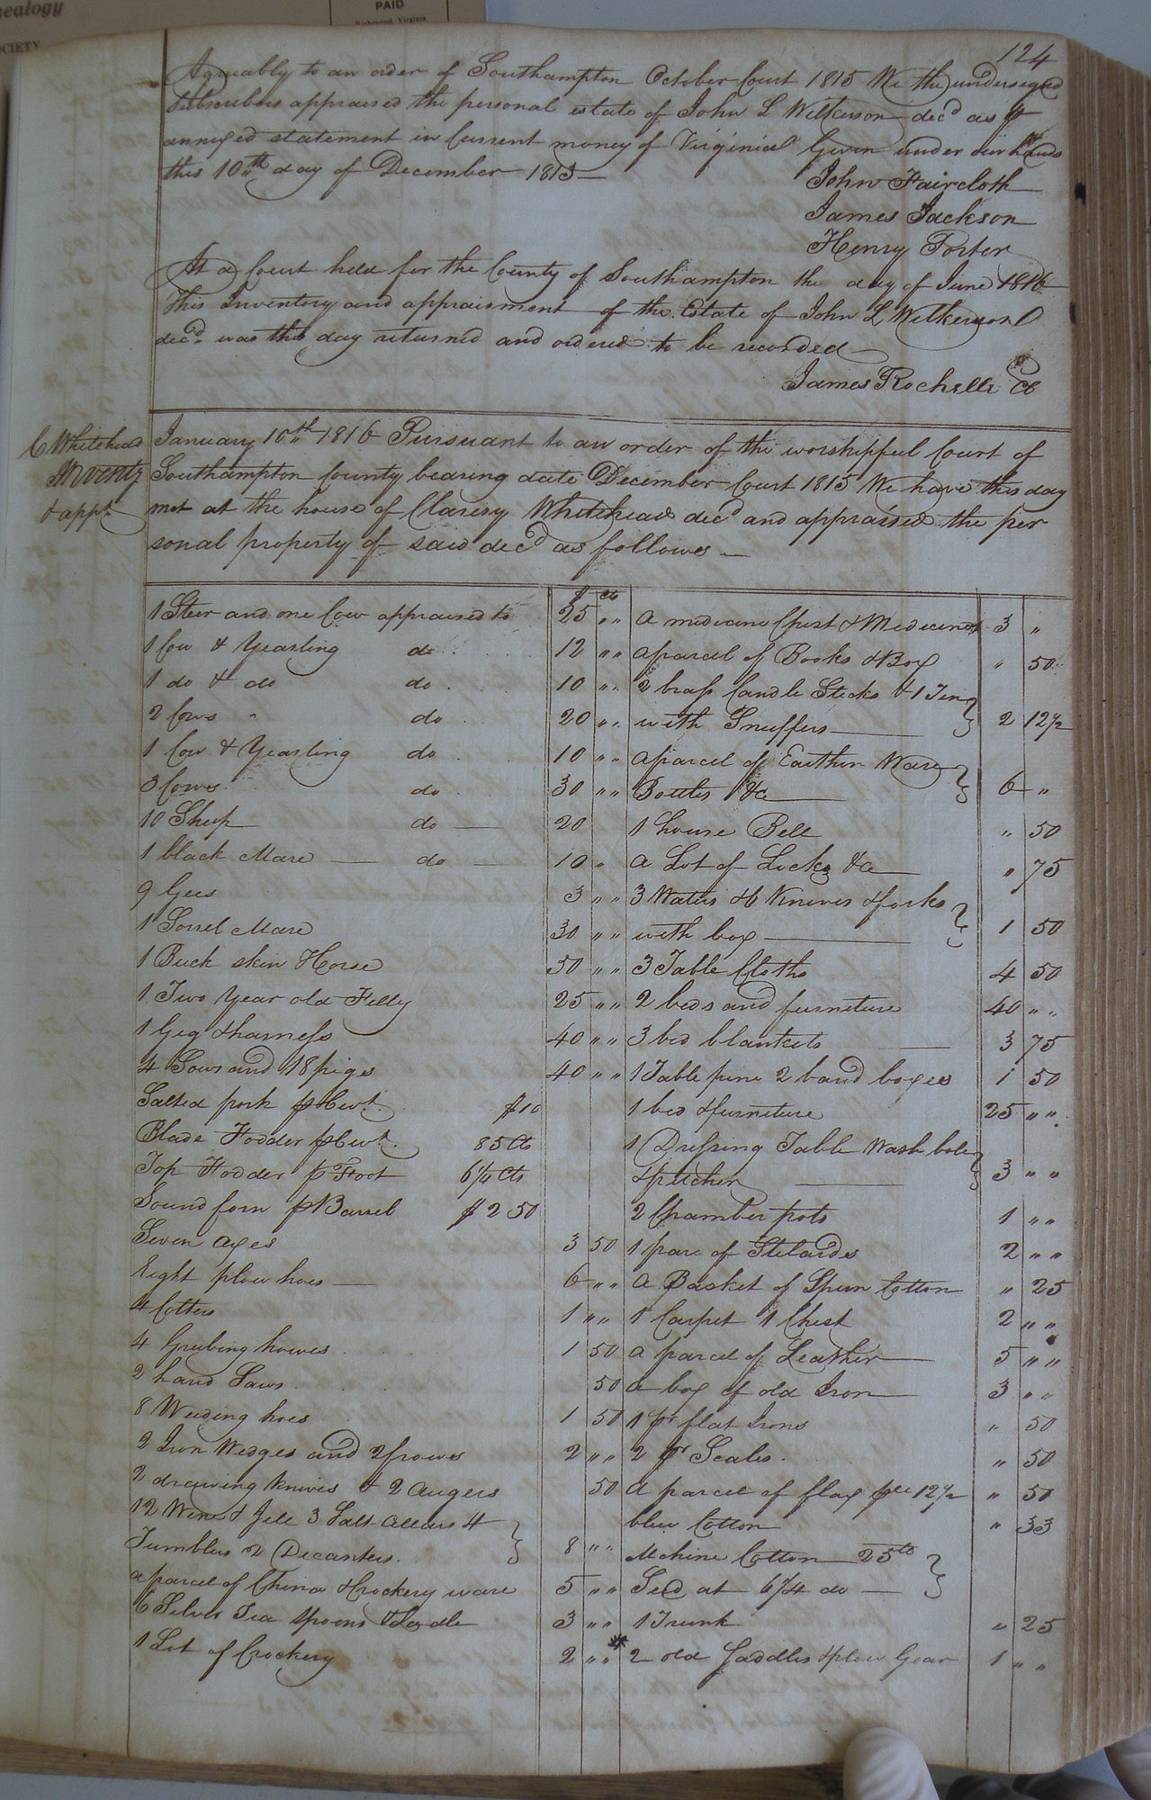 nealogy
OCIETY
PAID
Richmond, Virginia
124
Agreeably to an order of Southampton October Court 1815 We the undersigned
subscribers appraised the personal estate of John L Wilkerson decd as pr
annexed statement in Current money of Virginia Given under our hands
this 10th day of December 1815
John Faircloth
James Jackson
Henry Porter
At a Court held for the County of Southampton the day of June 1816
This Inventory and appraisment of the Estate of John L Wilkerson
decd was this day returned and ordered to be recorded
James Rochelle Cl
C Whitehead
Inventy
& appt
January 10th 1816 Pursuant to an order of the worshipful Court of
Southampton County bearing date December Court 1815 We have this day
met at the house of Claresy Whitehead decd and appraised the per-
sonal property of said decd as follows
$ cts
1 Steer and one Cow appraised to 25 " "
1 Cow & Yearling do 12 " "
1 do & do do 10 " "
2 Cows " do 20 " "
1 Cow & Yearling do 10 " "
3 Cows do 30 " "
10 Sheep do 20
1 black Mare do 10 "
9 Gees 3 " "
1 Sorrel Mare 30 " "
1 Buck skin Horse 50 " "
1 Two Year old Filly 25 " "
1 Gig & harness 40 " "
4 Sows and 18 piges 40 " "
Salted pork pr Cwt. $10
Blade Fodder pr Cwt. 85 Cts
Top Fodder pr Foot 6¼ Cts
Sound Corn pr Barrel $2 50
Seven axes 3 50
Eight plow hoes 6 " "
4 Colters 1 " "
4 Grubing howes 1 50
2 hand Saws 50
8 Weeding hoes 1 50
2 Iron Wedges and 2 frowes 2 " "
2 drawing knives & 2 augers 50
12 Wine & Jell 3 Salt Cellers 4
Tumblers 2 Decanters. 8 " "
a parcel of China & Crockery ware 5 " "
6 Silver Tea spoons & Ladle 3 " "
1 Lot of Crockery 2 " "
a medicine Chest & Medicines 3 "
a parcel of Books & Box " 50
2 brass Candle Sticks & 1 Tin
with Snuffers 2 12½
a parcel of Earthen Ware
Bottles &c 6 "
1 house Bell " 50
a Lot of Locks &c " 75
3 Waters & 6 Knives & forks
with box 1 50
3 Table Cloths 4 50
2 beds and furniture 40 " "
3 bed blankets 3 75
1 Table pine 2 band boxes 1 50
1 bed & furniture 25 " "
1 Dressing Table Wash bole
& pitcher 3 " "
2 Chamber pots 1 " "
1 pare of Stilards 2 " "
a Basket of Spun Cotton " 25
1 Carpet 1 Chest 2 " "
a parcel of Leather 5 " "
a box of old Iron 3 " "
1 pr flat Irons " 50
2 pr Scales. " 50
a parcel of flax 12½ " 50
blue Cotton " 33
Mchine Cotton 25 cts
Seed at 6¼ do
1 Trunk " 25
2 old Saddles & plow Gear 1 " "